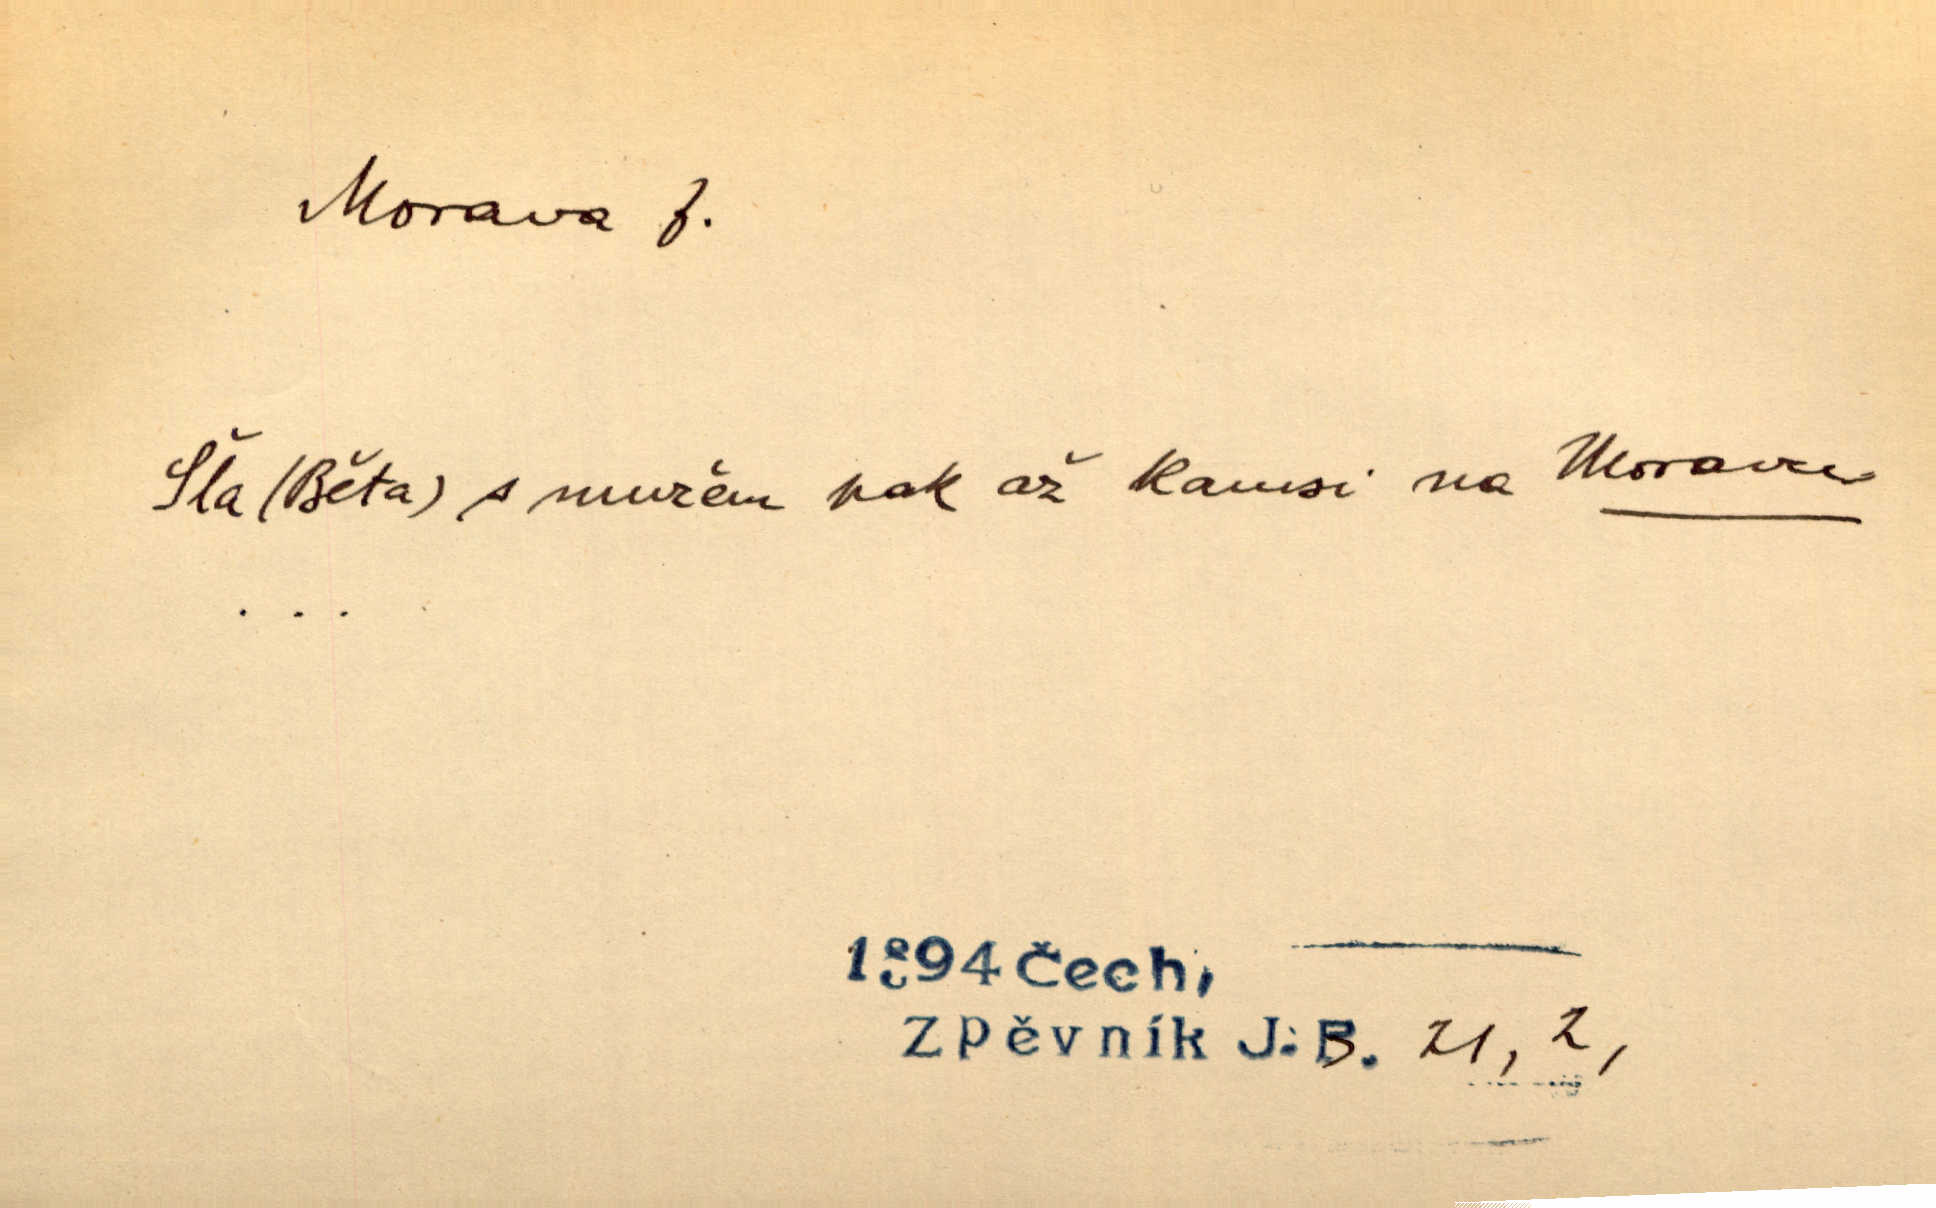 Morava f.
Šla (Běta) s mužem pak až kamsi na Moravu
. . .
1894 Čech,
Zpěvník J. B. 21, 2,